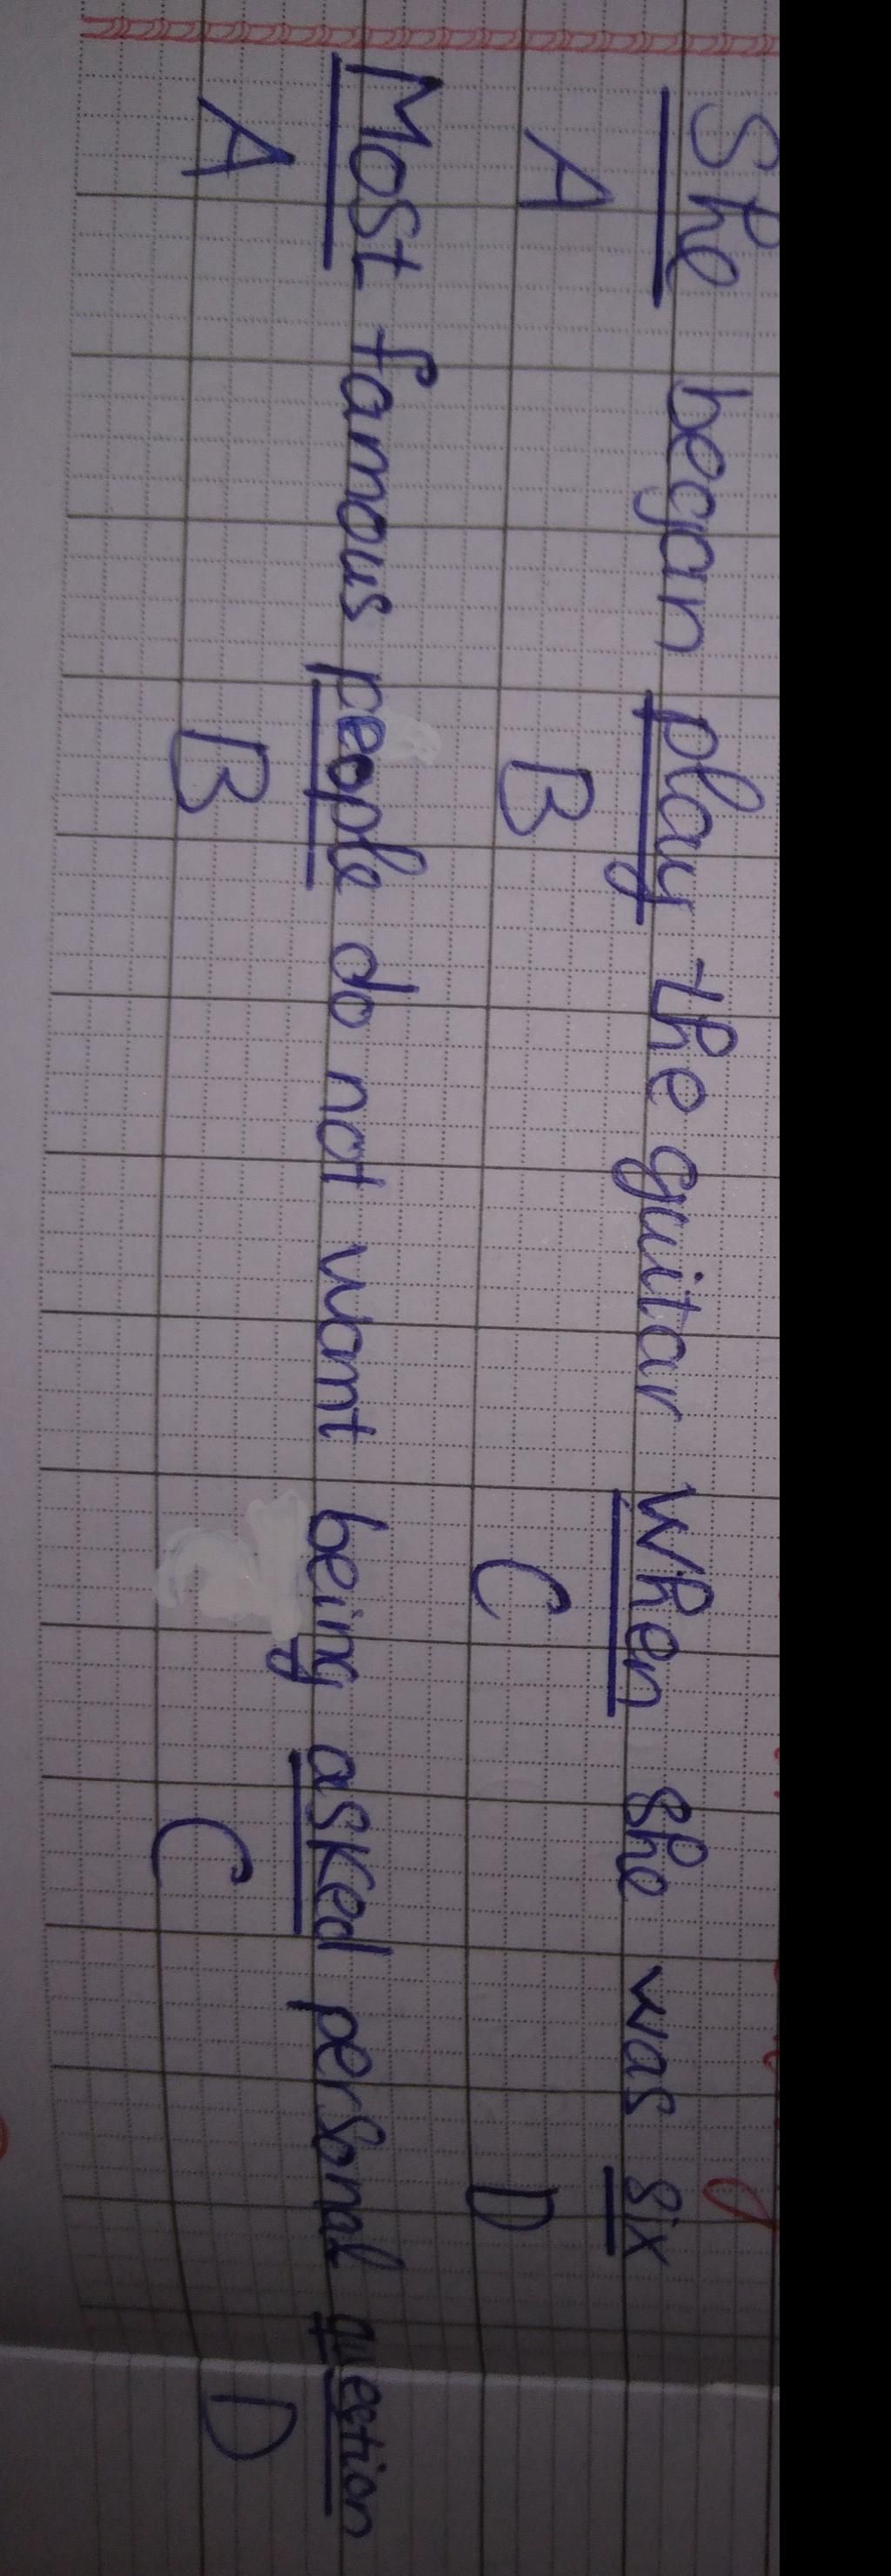 She began play the guitar when she was six
A B C D
Most famous people do not want being asked personal question
A B C D